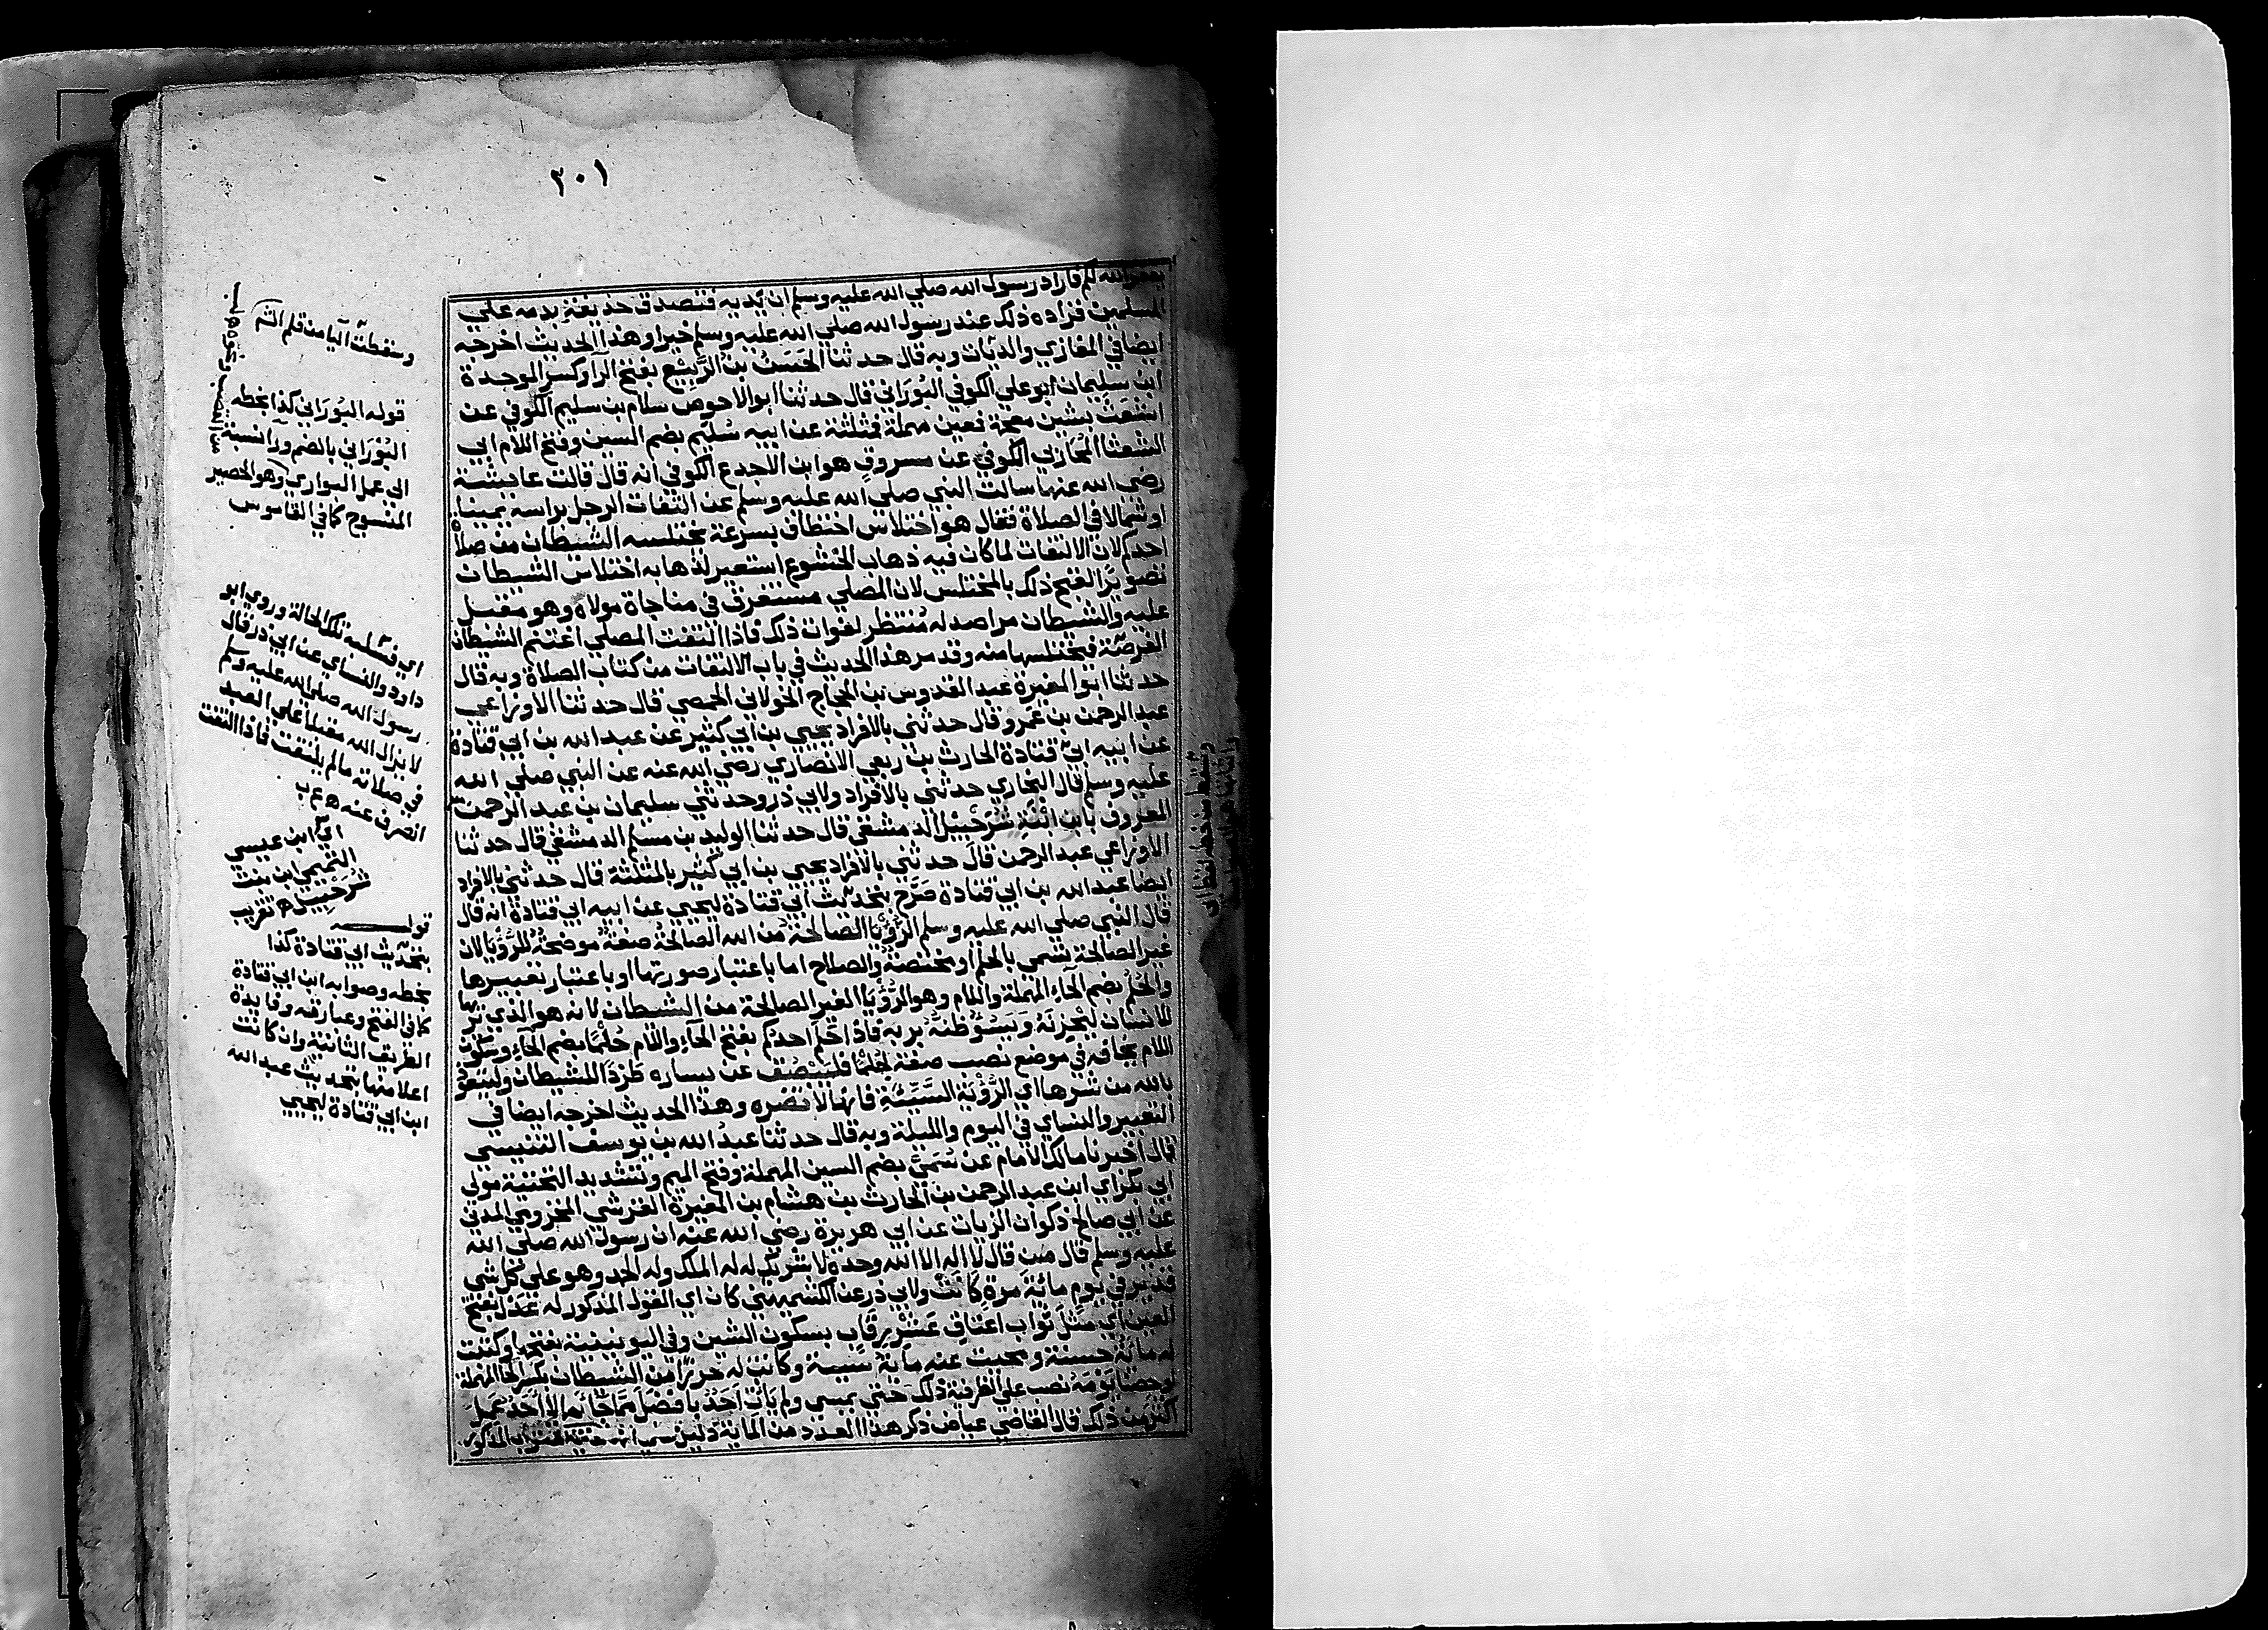 ٣٠١
يغفر الله لكم فاراد رسول الله صلي الله عليه وسلم ان يديه فتصدق حذيفة بدمه علي
المسلمين فزاده ذلك عند رسول الله صلي الله عليه وسلم خيرا وهذا الحديث اخرجه
ايضا في المغازي والديات وبه قال حدثنا الحسن بن الربيع بفتح الرا وكسر الموحدة
ابن سليمان ابو علي الكوفي البوراني قال حدثنا ابو الاحوص سلام بن سليم الكوفي عن
اشعث بشين معجمة فعين مهملة فمثلثة عن ابيه سليم بضم السين وفتح اللام ابي
الشعثا المحاربي الكوفي عن مسروق هو ابن الاجدع الكوفي انه قال قالت عايشة
رضي الله عنها سالت النبي صلي الله عليه وسلم عن التفات الرجل براسه يمينا
او شمالا في الصلاة فقال هو اختلاس اختطاف بسرعة يختلسه الشيطان من صلاة
احدكم لان الالتفات لما كان فيه ذهاب الخشوع استعير لذهابه اختلاس الشيطان
تصويرا لقبح ذلك بالمختلس لان المصلي مستغرق في مناجاة مولاه وهو مقبل
عليه والشيطان مراصد له منتظر لفوات ذلك فاذا التفت المصلي اغتنم الشيطان
الفرصة فيختلسها منه وقد مر هذا الحديث في باب الالتفات من كتاب الصلاة وبه قال
حدثنا ابو المغيرة عبد القدوس بن الحجاج الخولاني الحمصي قال حدثنا الاوزاعي
عبد الرحمن بن عمرو قال حدثني بالافراد يحيي بن ابي كثير عن عبد الله بن ابي قتادة
عن ابيه ابي قتادة الحارث بن ربعي الانصاري رضي الله عنه عن النبي صلي الله
عليه وسلم قال البخاري حدثني بالافراد ولابي ذر وحدثني سليمان بن عبد الرحمن
المعروف بابن ابنة شرحبيل الدمشقي قال حدثنا الوليد بن مسلم الدمشقي قال حدثنا
الاوزاعي عبد الرحمن قال حدثني بالافراد يحيي بن ابي كثير بالمثلثة قال حدثني بالافراد
ايضا عبد الله بن ابي قتادة صرح بتحديث ابي قتادة ليحيي عن ابيه ابي قتادة انه قال
قال النبي صلي الله عليه وسلم الرؤيا الصالحة من الله الصالحة صفة موضحة للرؤيا لان
غير الصالحة تسمي بالحلم او مخصصة والصلاح اما باعتبار صورتها او باعتبار تعبيرها
والحلم بضم الحاء المهملة واللام وهو الرؤيا الغير الصالحة من الشيطان لانه هو الذي يريها
للانسان ليحزنه ويسؤ ظنه بربه فاذا حلم احدكم بفتح الحاء واللام حلما بضم الحاء وسكون
اللام يخافه في موضع نصب صفة لحلما فليبصق عن يساره طردا للشيطان وليتعوذ
بالله من شرها اي الرؤية السيئة فانها لا تضره وهذا الحديث اخرجه ايضا في
التعبير والنساي في اليوم والليلة وبه قال حدثنا عبد الله بن يوسف التنيسي
قال اخبرنا مالك الامام عن سمي بضم السين المهملة وفتح الميم وتشديد التحتية مولي
ابي بكر اي ابن عبد الرحمن بن الحارث بن هشام بن المغيرة القرشي المخزومي المدني
عن ابي صالح ذكوان الزيات عن ابي هريرة رضي الله عنه ان رسول الله صلي الله
عليه وسلم قال من قال لا اله الا الله وحده لا شريك له له الملك وله الحمد وهو علي كل شي
قدير في يوم مائة مرة كانت ولابي ذر عن الكشميهني كان اي القول المذكور له عدل بفتح
العين اي مثل ثواب اعتاق عشر رقاب بسكون الشين وفي اليونينية بفتحها وكتبت
له مائة حسنة ومحيت عنه مائة سيئة وكانت له حرزا من الشيطان بكسر الحا المهملة
وحصنا يومه نصب علي الظرفية ذلك حتي يمسي ولم يات احد بافضل مما جا به الا احد عمل
اكثر من ذلك قال القاضي عياض ذكر هذا العدد من المائة دليل علي انه غاية للثواب المذكور
وسقطت آيا من قلم الش
قوله البوراني كذا بخطه
البوراني بالضم ورا نسبة
الي عمل البواري وهو الحصير
المنسوج كما في القاموس
اي فسلبه تلك الحالة وروي ابو
داود والنساي عن ابي ذر قال
رسول الله صلي الله عليه وسلم
لا يزال الله مقبلا علي العبد
في صلاته ما لم يلتفت فاذا التفت
انصرف عنه
اي ابن عيسي
التميمي ابن بنت
شرحبيل اه تقريب
قوله
بتحديث ابي قتادة كذا
بخطه وصوابه ابن ابي قتادة
كما في الفتح وعبارته وفايدة
الطريق الثانية وان كانت
اعلا منها بتحديث عبد الله
ابن ابي قتادة ليحيي